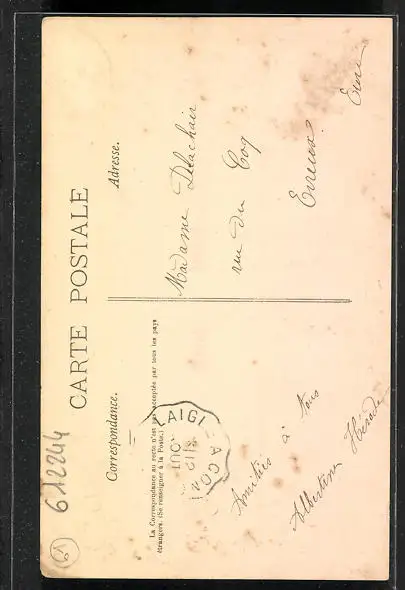 CARTE POSTALE
Correspondance.
Adresse.
La Correspondance au recto n'est pas acceptée par tous les pays
étrangers. (Se renseigner à la Poste.)
LAIGL
A CON
12
AOUT
Amitiés à tous
Albertine
Madame Delachair
rue du Coq
Evreux
Eure
612244
61